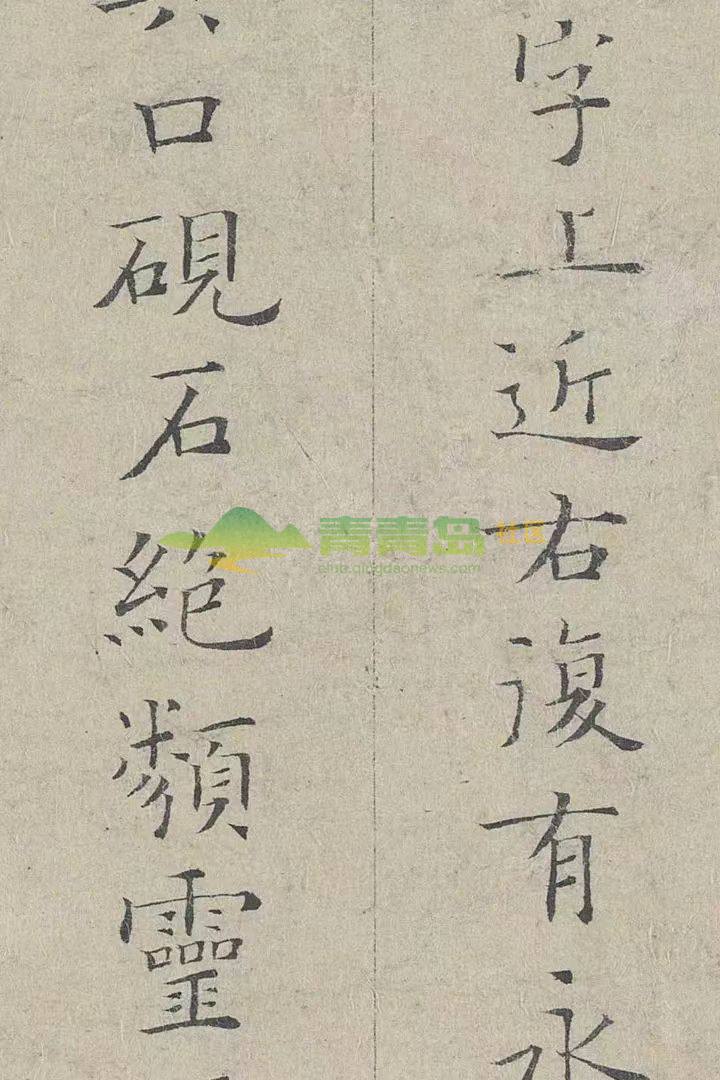 字上近右復有永
口硯石絕類靈
青青岛社区
club.qingdaonews.com